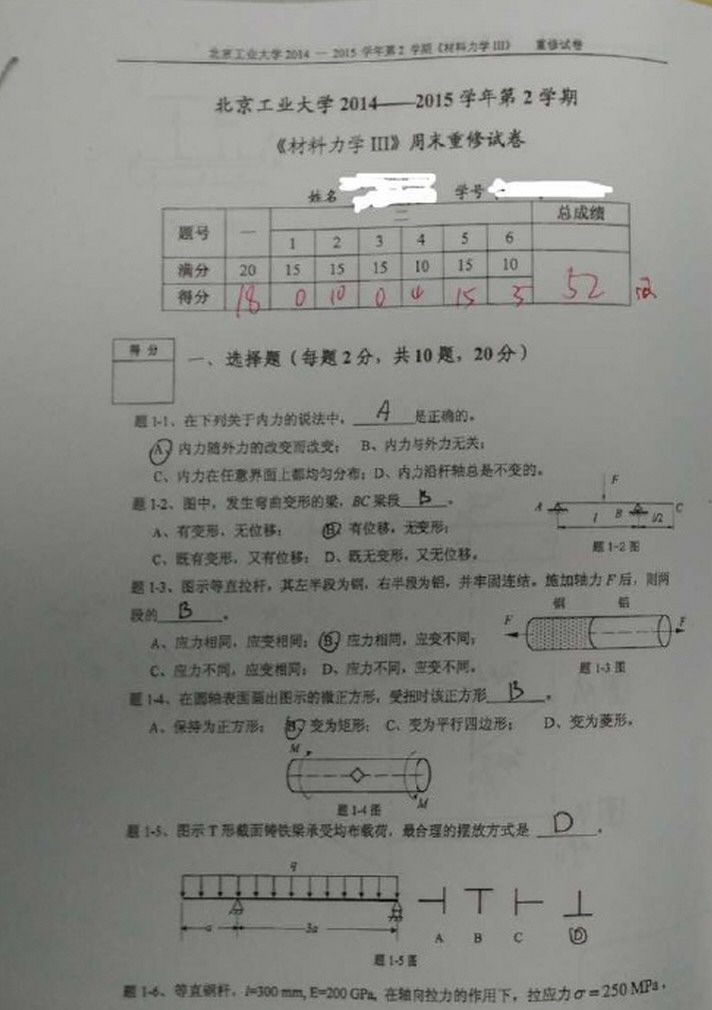 北京工业大学2014 — 2015学年第2学期《材料力学III》 重修试卷
北京工业大学2014——2015学年第2学期
《材料力学III》周末重修试卷
姓名 学号
题号 一 二 总成绩
1 2 3 4 5 6
满分 20 15 15 15 10 15 10
得分 18 0 10 0 4 15 5 52
得分
一、选择题（每题2分，共10题，20分）
题1-1、在下列关于内力的说法中，A是正确的。
A、内力随外力的改变而改变； B、内力与外力无关；
C、内力在任意界面上都均匀分布；D、内力沿杆轴总是不变的。
题1-2、图中，发生弯曲变形的梁，BC梁段B。
A、有变形，无位移； B、有位移，无变形；
C、既有变形，又有位移； D、既无变形，又无位移。
F
A l B l/2 C
题1-2图
题1-3、图示等直拉杆，其左半段为钢，右半段为铝，并牢固连结。施加轴力F后，则两
段的B。
钢 铝
F F
A、应力相同，应变相同； B、应力相同，应变不同；
C、应力不同，应变相同； D、应力不同，应变不同。
题1-3图
题1-4、在圆轴表面画出图示的微正方形，受扭时该正方形B。
A、保持为正方形； B、变为矩形； C、变为平行四边形； D、变为菱形。
M
M
题1-4图
题1-5、图示T形截面铸铁梁承受均布载荷，最合理的摆放方式是 D。
q
a 3a
A B C D
题1-5图
题1-6、等直钢杆，l=300 mm, E=200 GPa, 在轴向拉力的作用下，拉应力σ=250 MPa，